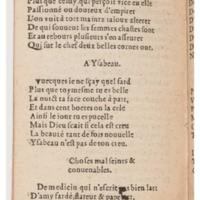 Plus que celuy, qui perçoit vice en elle
Passionné ou douteux d'empirer
L'on voit à tort maintz jaloux alterer
De qui souuent les femmes chastes sont
Et au rebours plusieurs s'en asseurer
Qui sur le chef deux belles cornes ont.
A Ysabeau.
ne sçay quel fard
Plus que toymesme tu es belle
La nuict ta face couche à part,
Et dans cent boetes on la cele
Ainsi le iour tu y
Mais Dieu scait si cela est creu
La beauté tant de fois nouuelle
Ysabeau n'est pas de ton creu.
Choses mal seintes &
conuenables.
De medicin qui n'escrit pas bien
D'amy fardé, flateur &